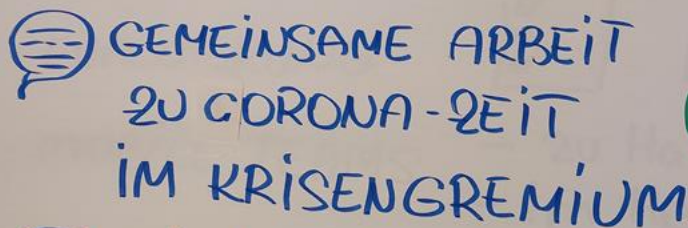 GEMEINSAME ARBEIT
ZU CORONA-ZEIT
IM KRISENGREMIUM